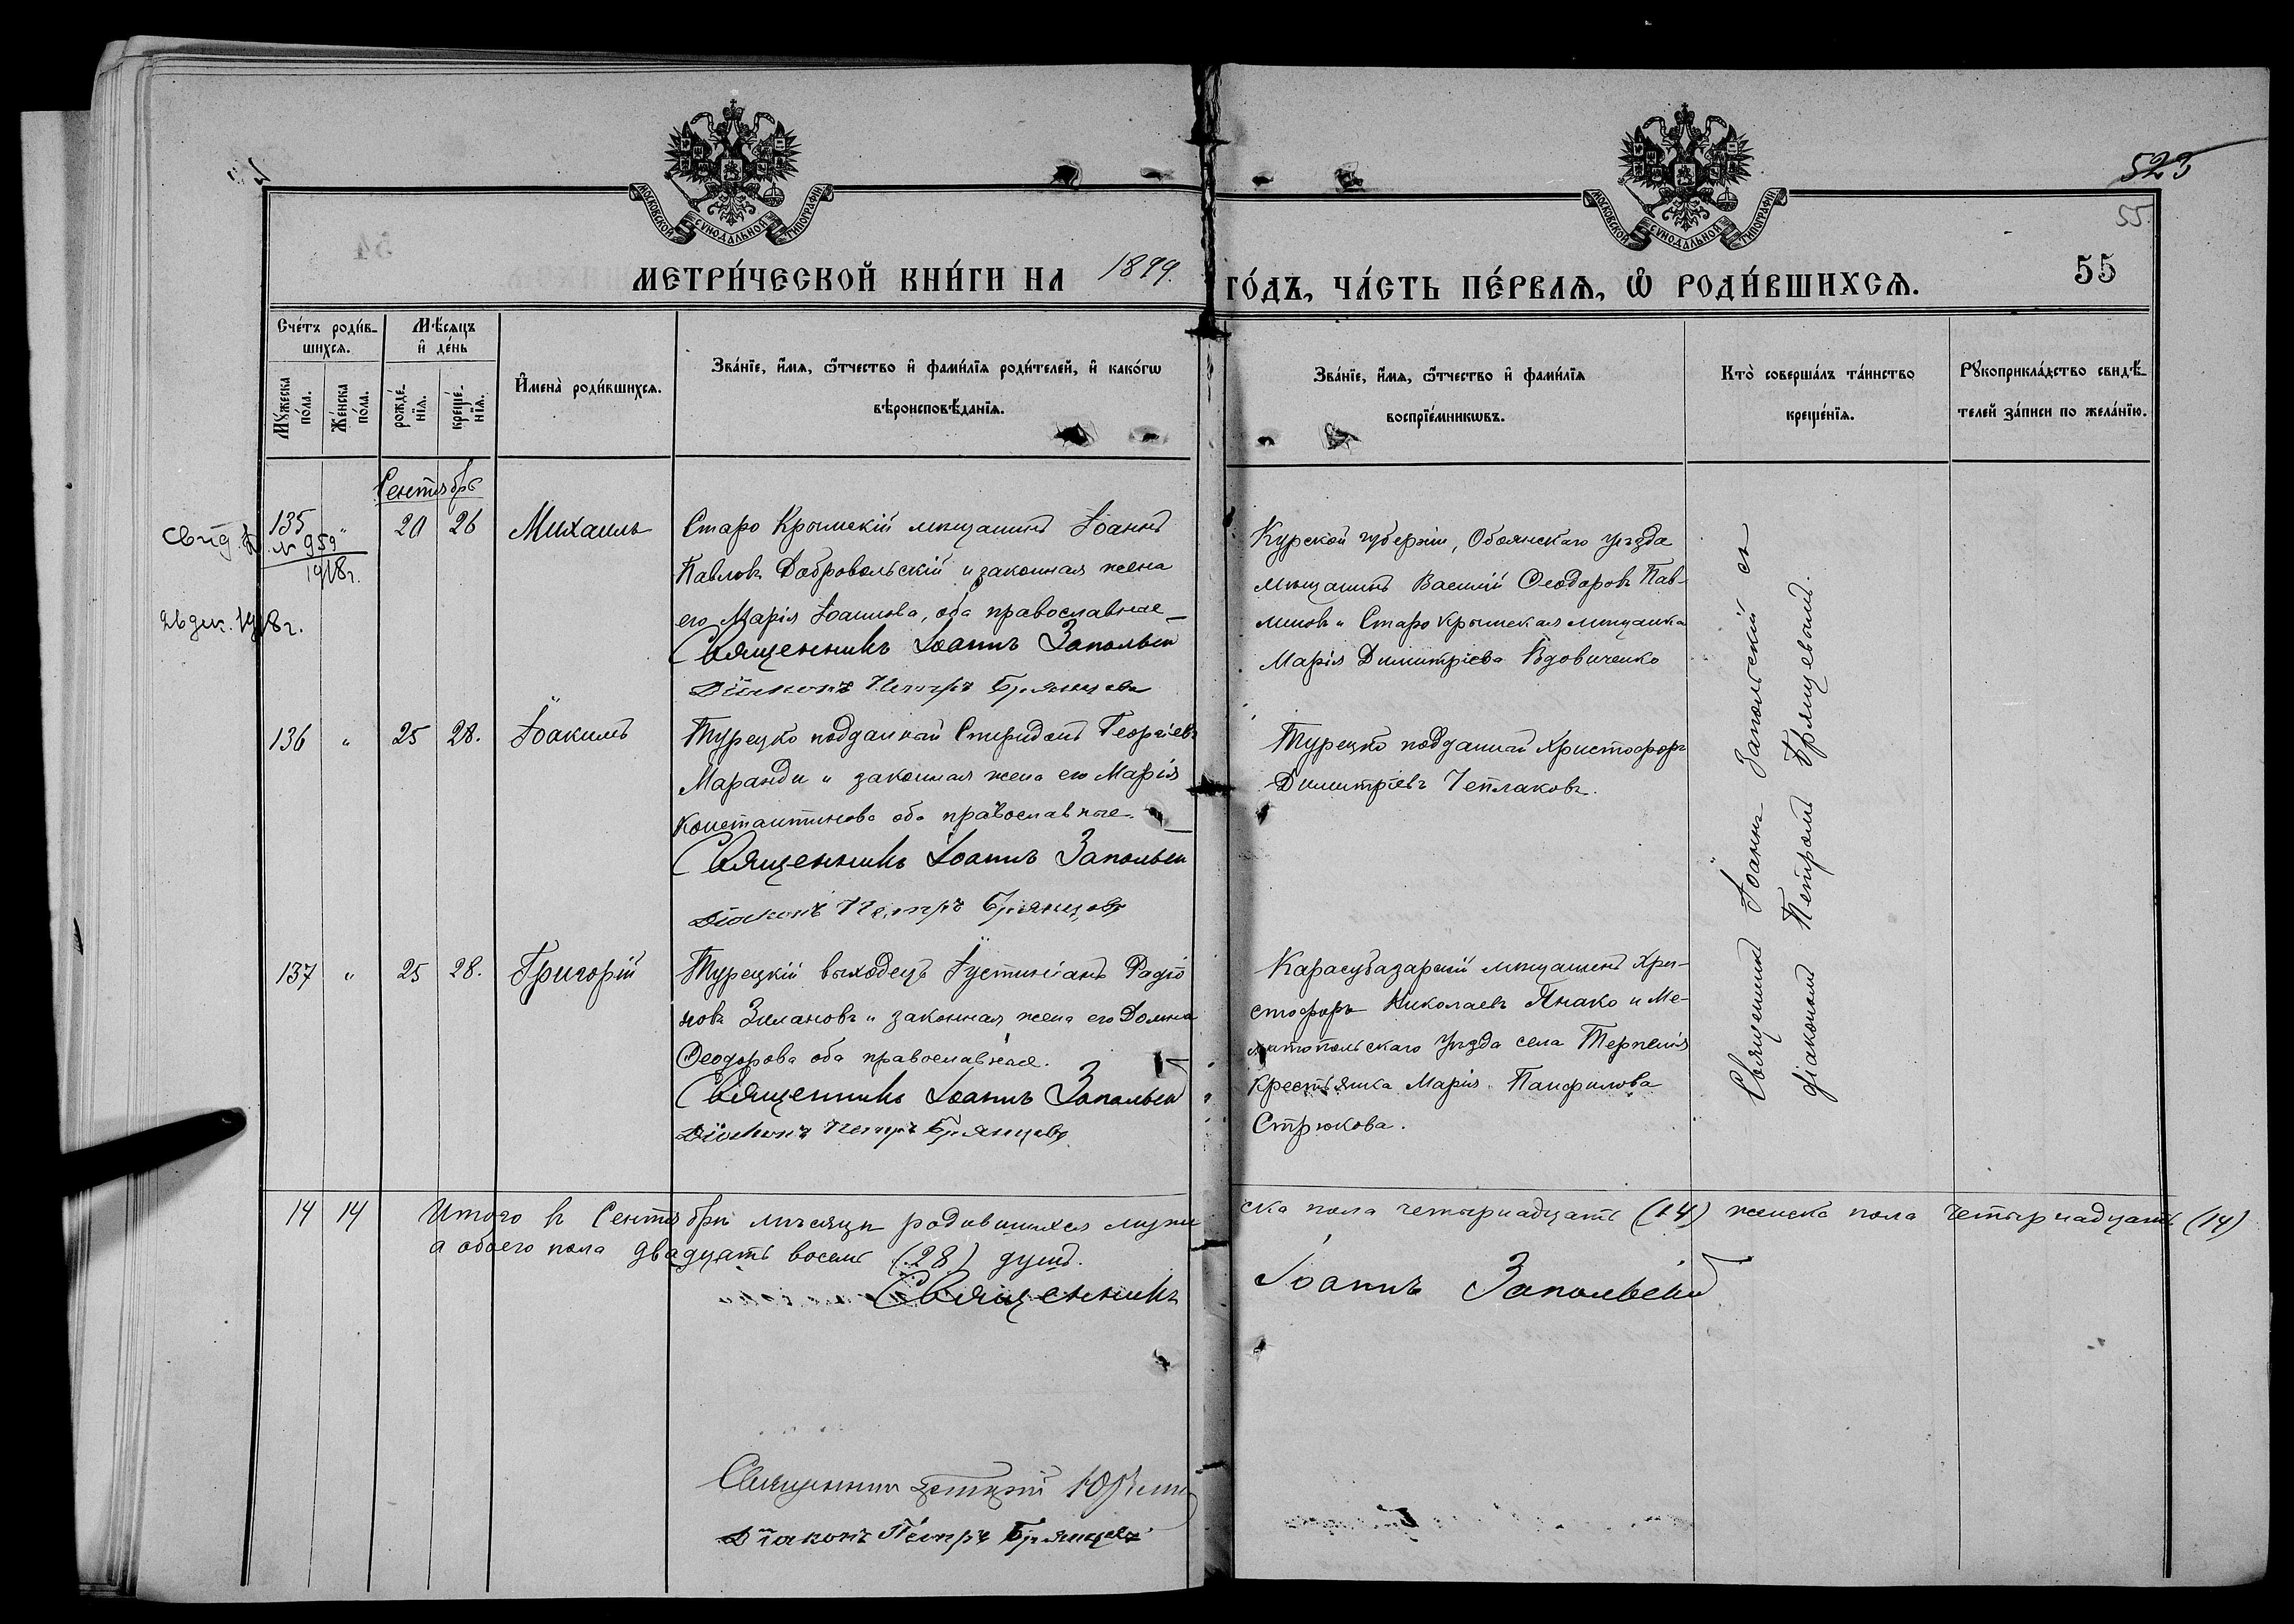 523
55.
МОСКОВСКОЙ СѴНОДАЛЬНОЙ ТИПОГРАФІИ
МОСКОВСКОЙ СѴНОДАЛЬНОЙ ТИПОГРАФІИ
МЕТРИ́ЧЕСКОЙ КНИ́ГИ НА 1899. ГО́ДЪ, ЧА́СТЬ ПЕ́РВАѦ, Ѽ РОДИ́ВШИХСѦ.
55
Счéтъ роди́в-
шихсѧ.
Мꙋ́жеска
по́ла.
Же́нска
по́ла.
Мѣ́сѧцъ
и҆ де́нь
рожде́-
нїѧ.
креще́-
нїѧ.
И҆мена̀ роди́вшихсѧ.
Зва́нїе, и҆́мѧ, ѻ҆́тчество и҆ фами́лїѧ роди́телей, и҆ како́гѡ
вѣроисповѣ́данїѧ.
Зва́нїе, и҆́мѧ, ѻ҆́тчество и҆ фами́лїѧ
воспрїе́мникѡвъ.
Кто̀ соверша́лъ та́инство
креще́нїѧ.
Рꙋкоприкла́дство свидѣ́-
телей за́писи по жела́нїю.
Сентябрь
Свид.
№ 959
1918г.
26 дек. 1918г.
135 " 20 26 Михаилъ
Старо Крымскій мѣщанинъ Іоаннъ
Павловъ Добровольскій и законная жена
его Марія Іоаннова, оба православные
Священникъ Іоаннъ Запольскій
Діаконъ Петръ Брянцевъ
Курской губерніи, Обоянскаго уѣзда
мѣщанинъ Василій Ѳеодоровъ Пав-
линовъ и Старо Крымская мѣщанка
Марія Димитріева Вдовиченко
136 " 25 28. Іоакимъ
Турецко подданный Спиридонъ Георгіевъ
Маранди и законная жена его Марія
Константинова оба православные.
Священникъ Іоаннъ Запольскій
Діаконъ Петръ Брянцевъ
Турецко подданный Христофоръ
Димитріевъ Чеплаковъ.
137 " 25 28. Григорій
Турецкій выходецъ Іустиніанъ Радіо
новъ Зилановъ и законная жена его Домна
Ѳеодорова оба православные.
Священникъ Іоаннъ Запольскій
Діаконъ Петръ Брянцевъ
Карасубазарскій мѣщанинъ Хри-
стофоръ Николаевъ Янако и Ме-
литопольскаго уѣзда села Терпенія
крестьянка Марія Панфилова
Стрюкова.
Священникъ Іоаннъ Запольскій съ
діакономъ Петромъ Брянцевымъ.
14 14 Итого въ Сентябрѣ мѣсяцѣ родившихся муже ска пола четырнадцать (14) женска пола четырнадцать (14)
а обоего пола двадцать восемь (28) душъ.
Священникъ Іоаннъ Запольскій
Священникъ
Діаконъ Петръ Брянцевъ